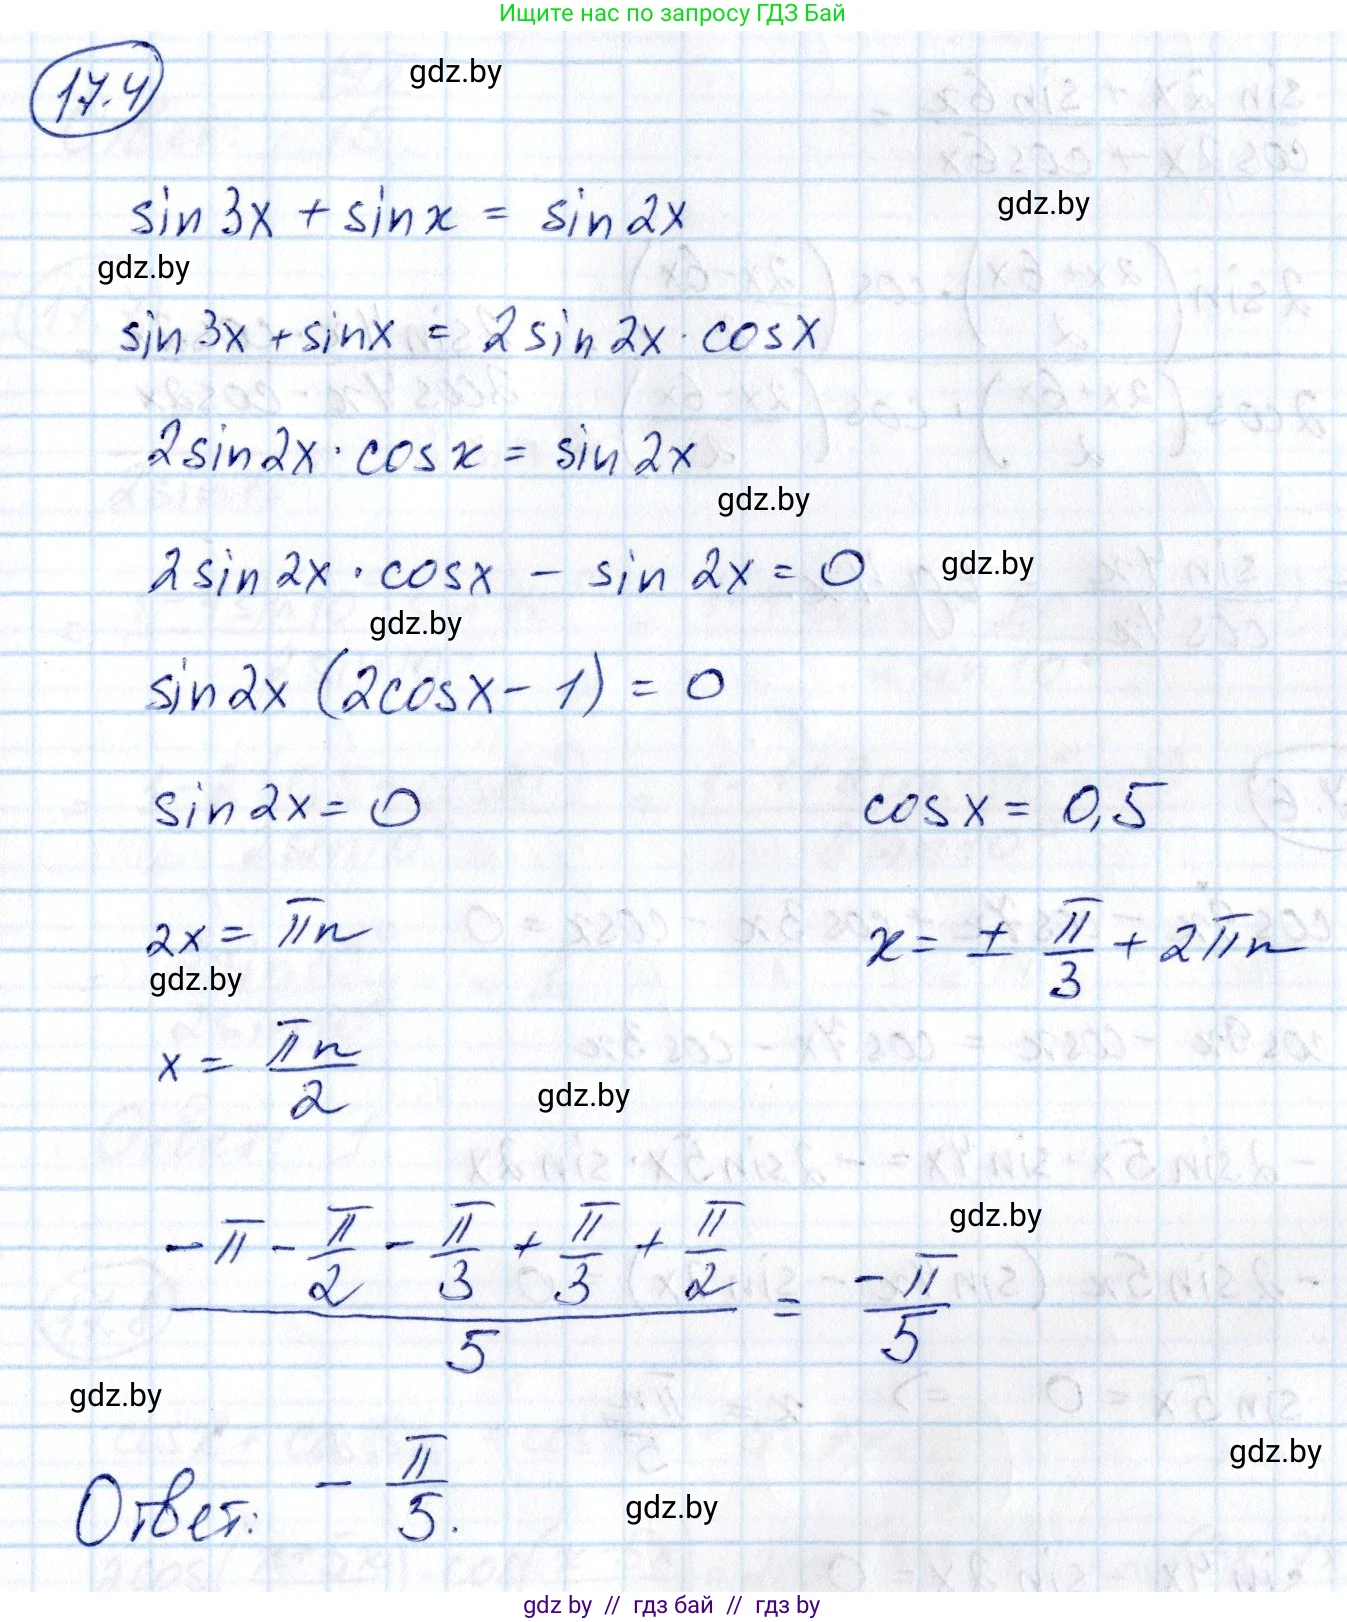 Ищите нас по запросу ГДЗ Бай
17.4
gdz.by
sin 3x + sin x = sin 2x
gdz.by
gdz.by
sin 3x + sin x = 2 sin 2x · cos x
2 sin 2x · cos x = sin 2x
gdz.by
2 sin 2x · cos x − sin 2x = 0
gdz.by
gdz.by
sin 2x (2cos x − 1) = 0
sin 2x = 0 cos x = 0,5
2x = πn x = ± π/3 + 2πn
gdz.by
x = πn/2
gdz.by
gdz.by
(−π − π/2 − π/3 + π/3 + π/2)/5 = −π/5
gdz.by
gdz.by
Ответ: − π/5.
gdz.by
gdz by // гдз бай // гдз by